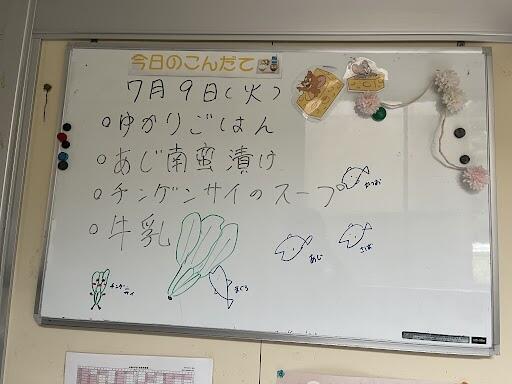 今日のこんだて
7月9日(火)
○ゆかりごはん
○あじ南蛮漬け
○チンゲンサイのスープ
○牛乳
かつお
あじ
さば
まぐろ
チンゲン
サイ